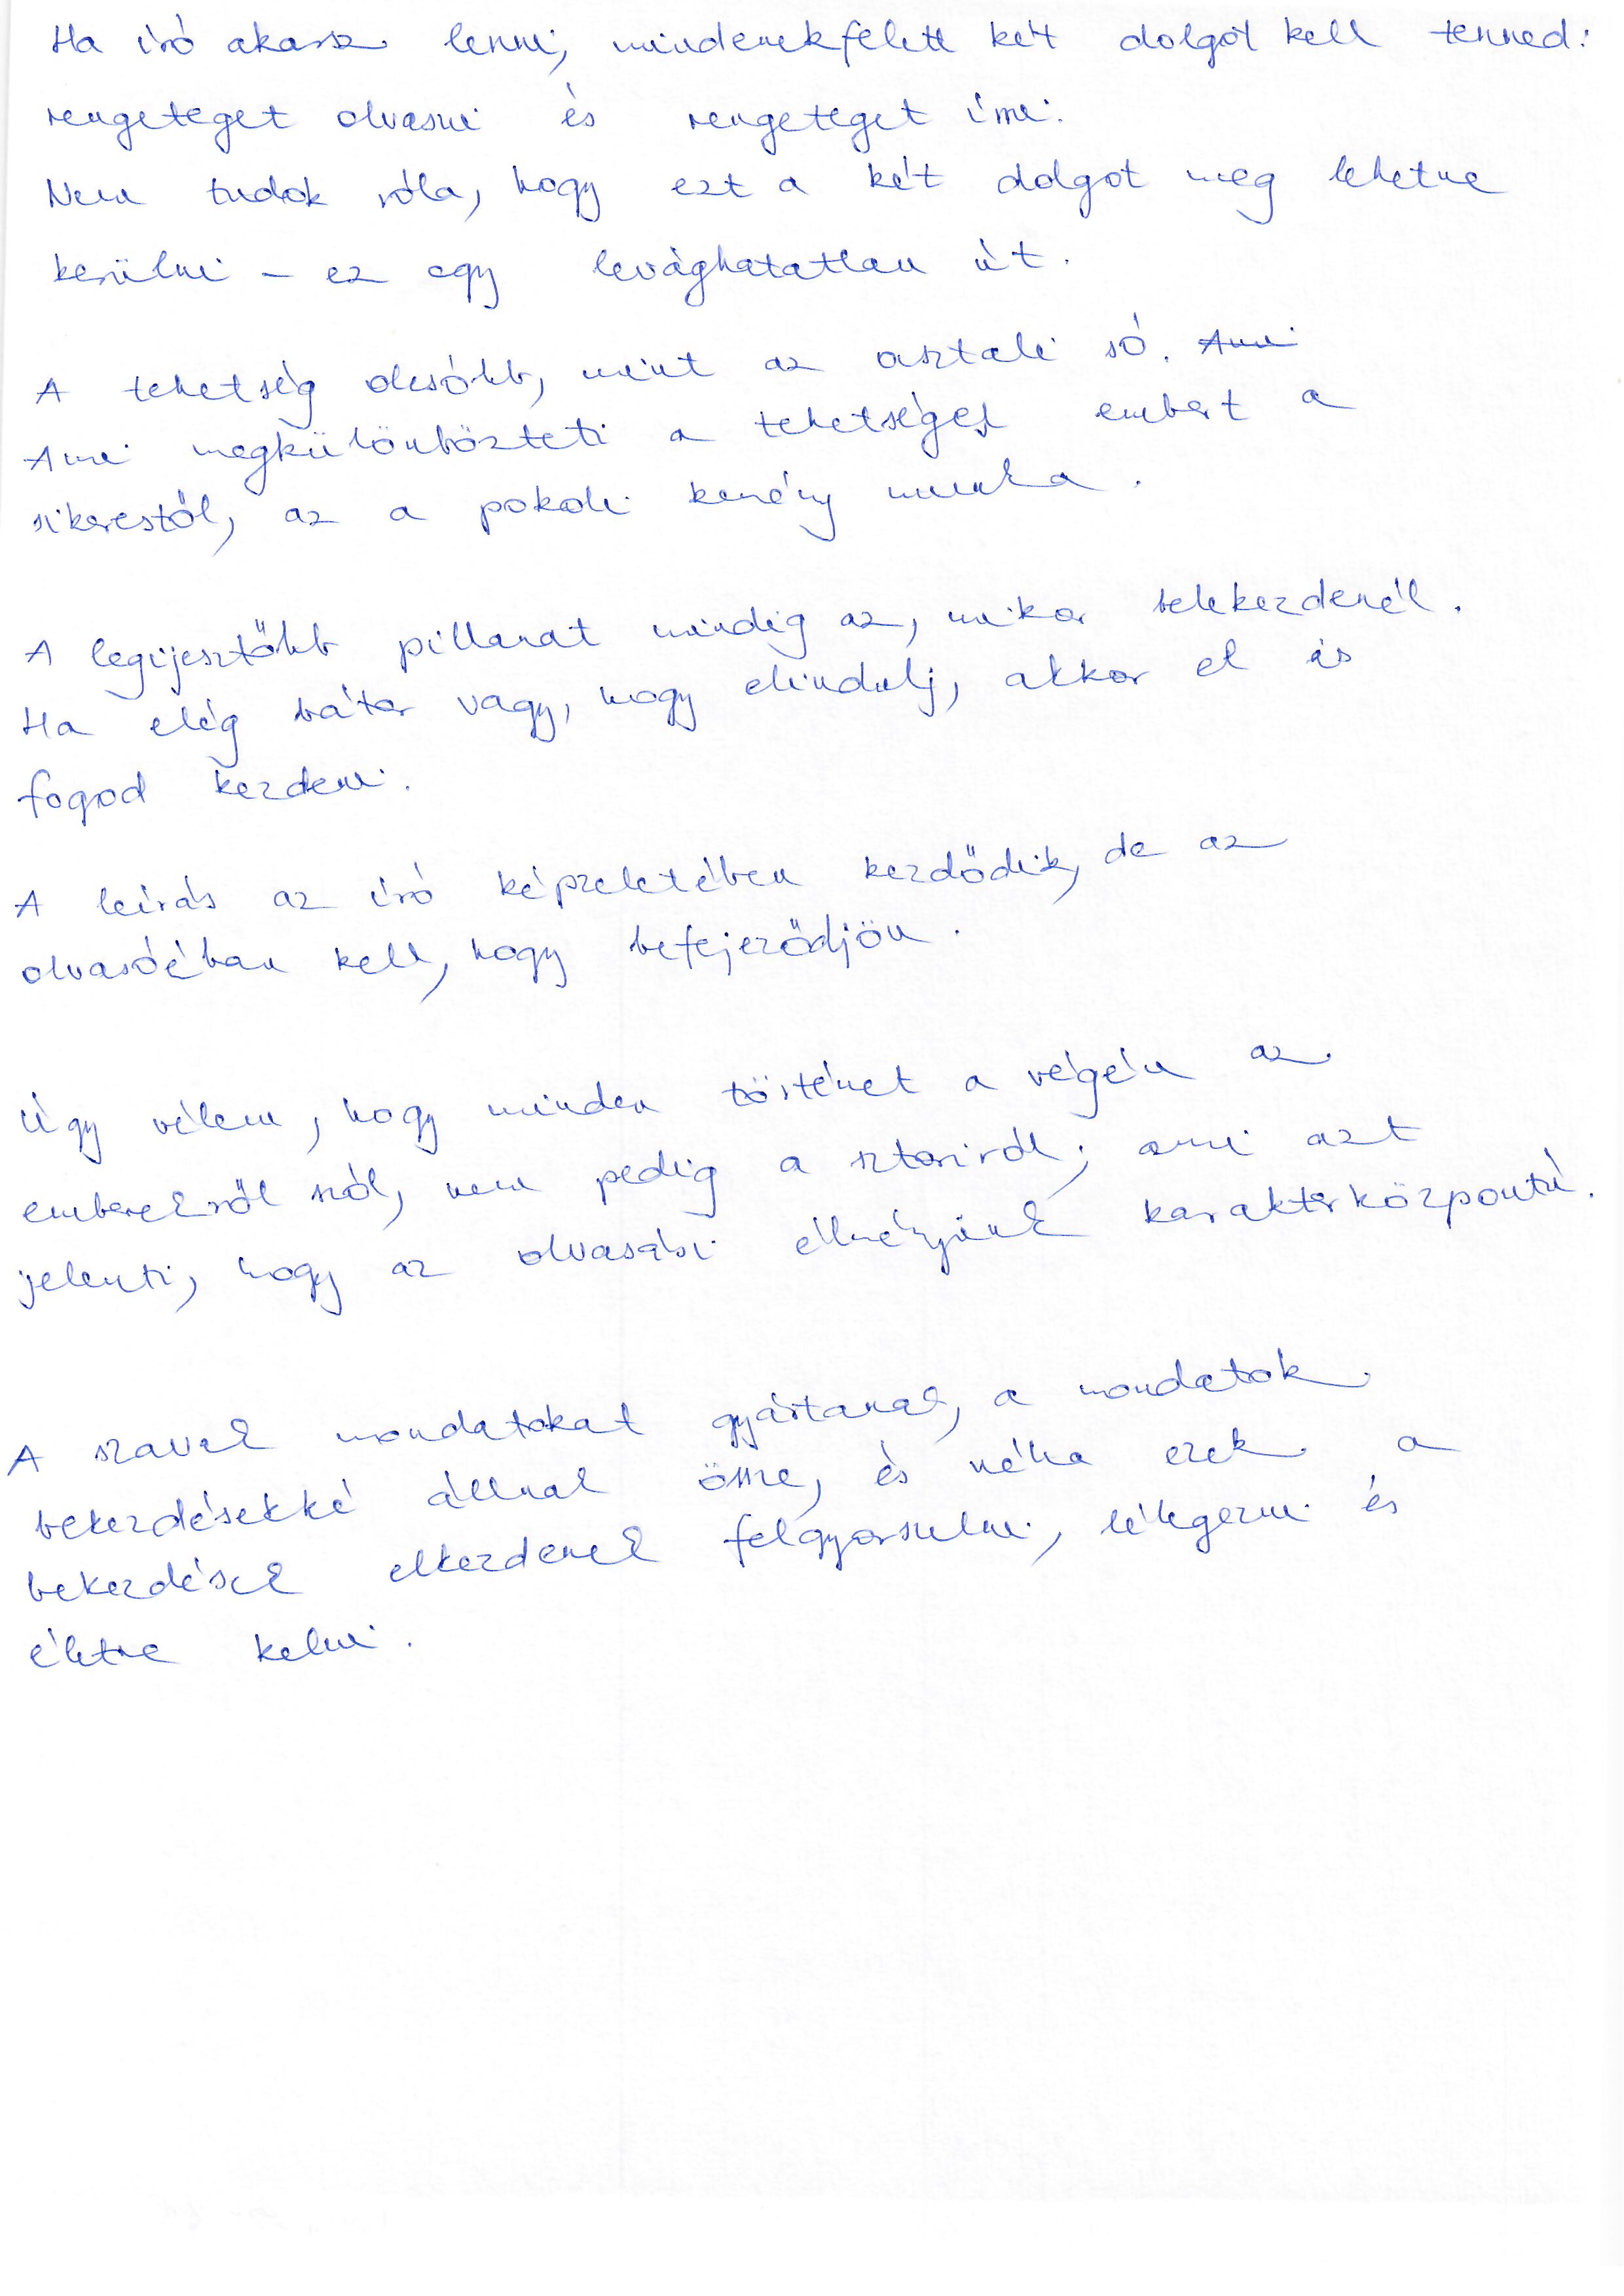 Ha író akarsz lenni, mindenekfelett két dolgot kell tenned:
rengeteget olvasni és rengeteget írni.
Nem tudok róla, hogy ezt a két dolgot meg lehetne
kerülni – ez egy levághatatlan út.
A tehetség olcsóbb, mint az asztali só. Ami
Ami megkülönbözteti a tehetséges embert a
sikerestől, az a pokoli kemény munka.
A legijesztőbb pillanat mindig az, mikor belekezdenél.
Ha elég bátor vagy, hogy elindulj, akkor el is
fogod kezdeni.
A leírás az író képzeletében kezdődik, de az
olvasóéban kell, hogy befejeződjön.
Úgy vélem, hogy minden történet a végén az
emberekről szól, nem pedig a sztoriról; ami azt
jelenti, hogy az olvasási élményünk karakterközpontú.
A szavak mondatokat gyártanak, a mondatok
bekezdésekké állnak össze, és néha ezek a
bekezdések elkezdenek felgyorsulni, lélegezni és
életre kelni.